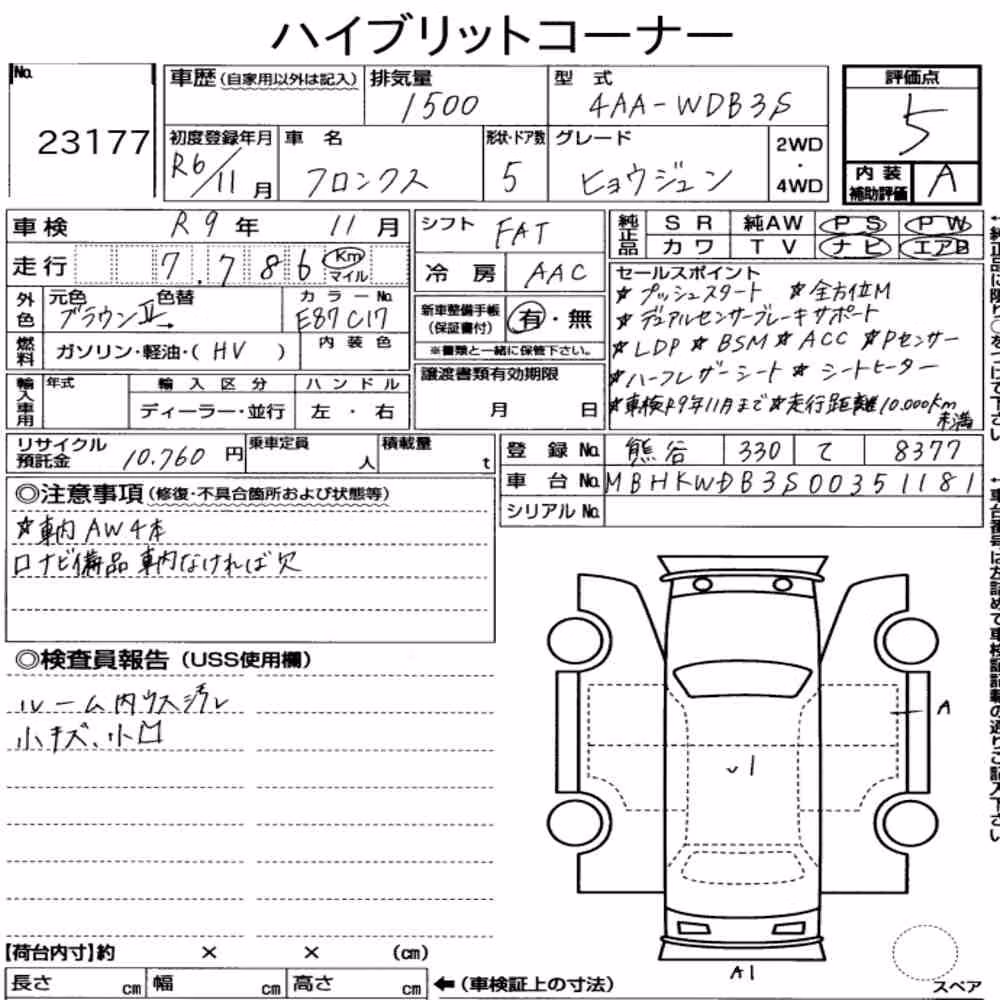 ハイブリットコーナー
No.
23177
車歴 (自家用以外は記入)
排気量
1500
型式
4AA-WDB3S
評価点
5
初度登録年月
R6/11月
車名
フロンクス
形状・ドア数
5
グレード
ヒョウジュン
2WD
・
4WD
内装
補助評価
A
車検 R9年 11月
シフト FAT
純正品
SR 純AW PS PW
カワ TV ナビ エアB
走行 7.786 Km
マイル
冷房 AAC
外色
元色 色替
ブラウンⅡ→
カラーNo.
E87C17
新車整備手帳
(保証書付)
有・無
※書類と一緒に保管下さい。
燃料
ガソリン・軽油・( HV )
内装色
セールスポイント
☆プッシュスタート ☆全方位M
☆デュアルセンサーブレーキサポート
☆LDP ☆BSM ☆ACC ☆Pセンサー
☆ハーフレザーシート ☆シートヒーター
☆車検R9年11月まで ☆走行距離10.000Km
未満
輸入車用
年式
輸入区分
ハンドル
ディーラー・並行
左・右
譲渡書類有効期限
月 日
リサイクル
預託金
10.760円
乗車定員
人
積載量
t
登録No. 熊谷 330 て 8377
車台No. MBHKWDB3S00351181
シリアルNo.
◎注意事項 (修復・不具合箇所および状態等)
☆車内AW4本
ロナビ備品車内なければ欠
◎検査員報告 (USS使用欄)
ルーム内ウス汚レ
小キズ、小凹
A
A1
【荷台内寸】約 × × (cm)
長さ cm 幅 cm 高さ cm
←(車検証上の寸法)
スペア
←純正品に限り○をつけて下さい
←車台番号は左詰めで車検証記載の通りご記入下さい